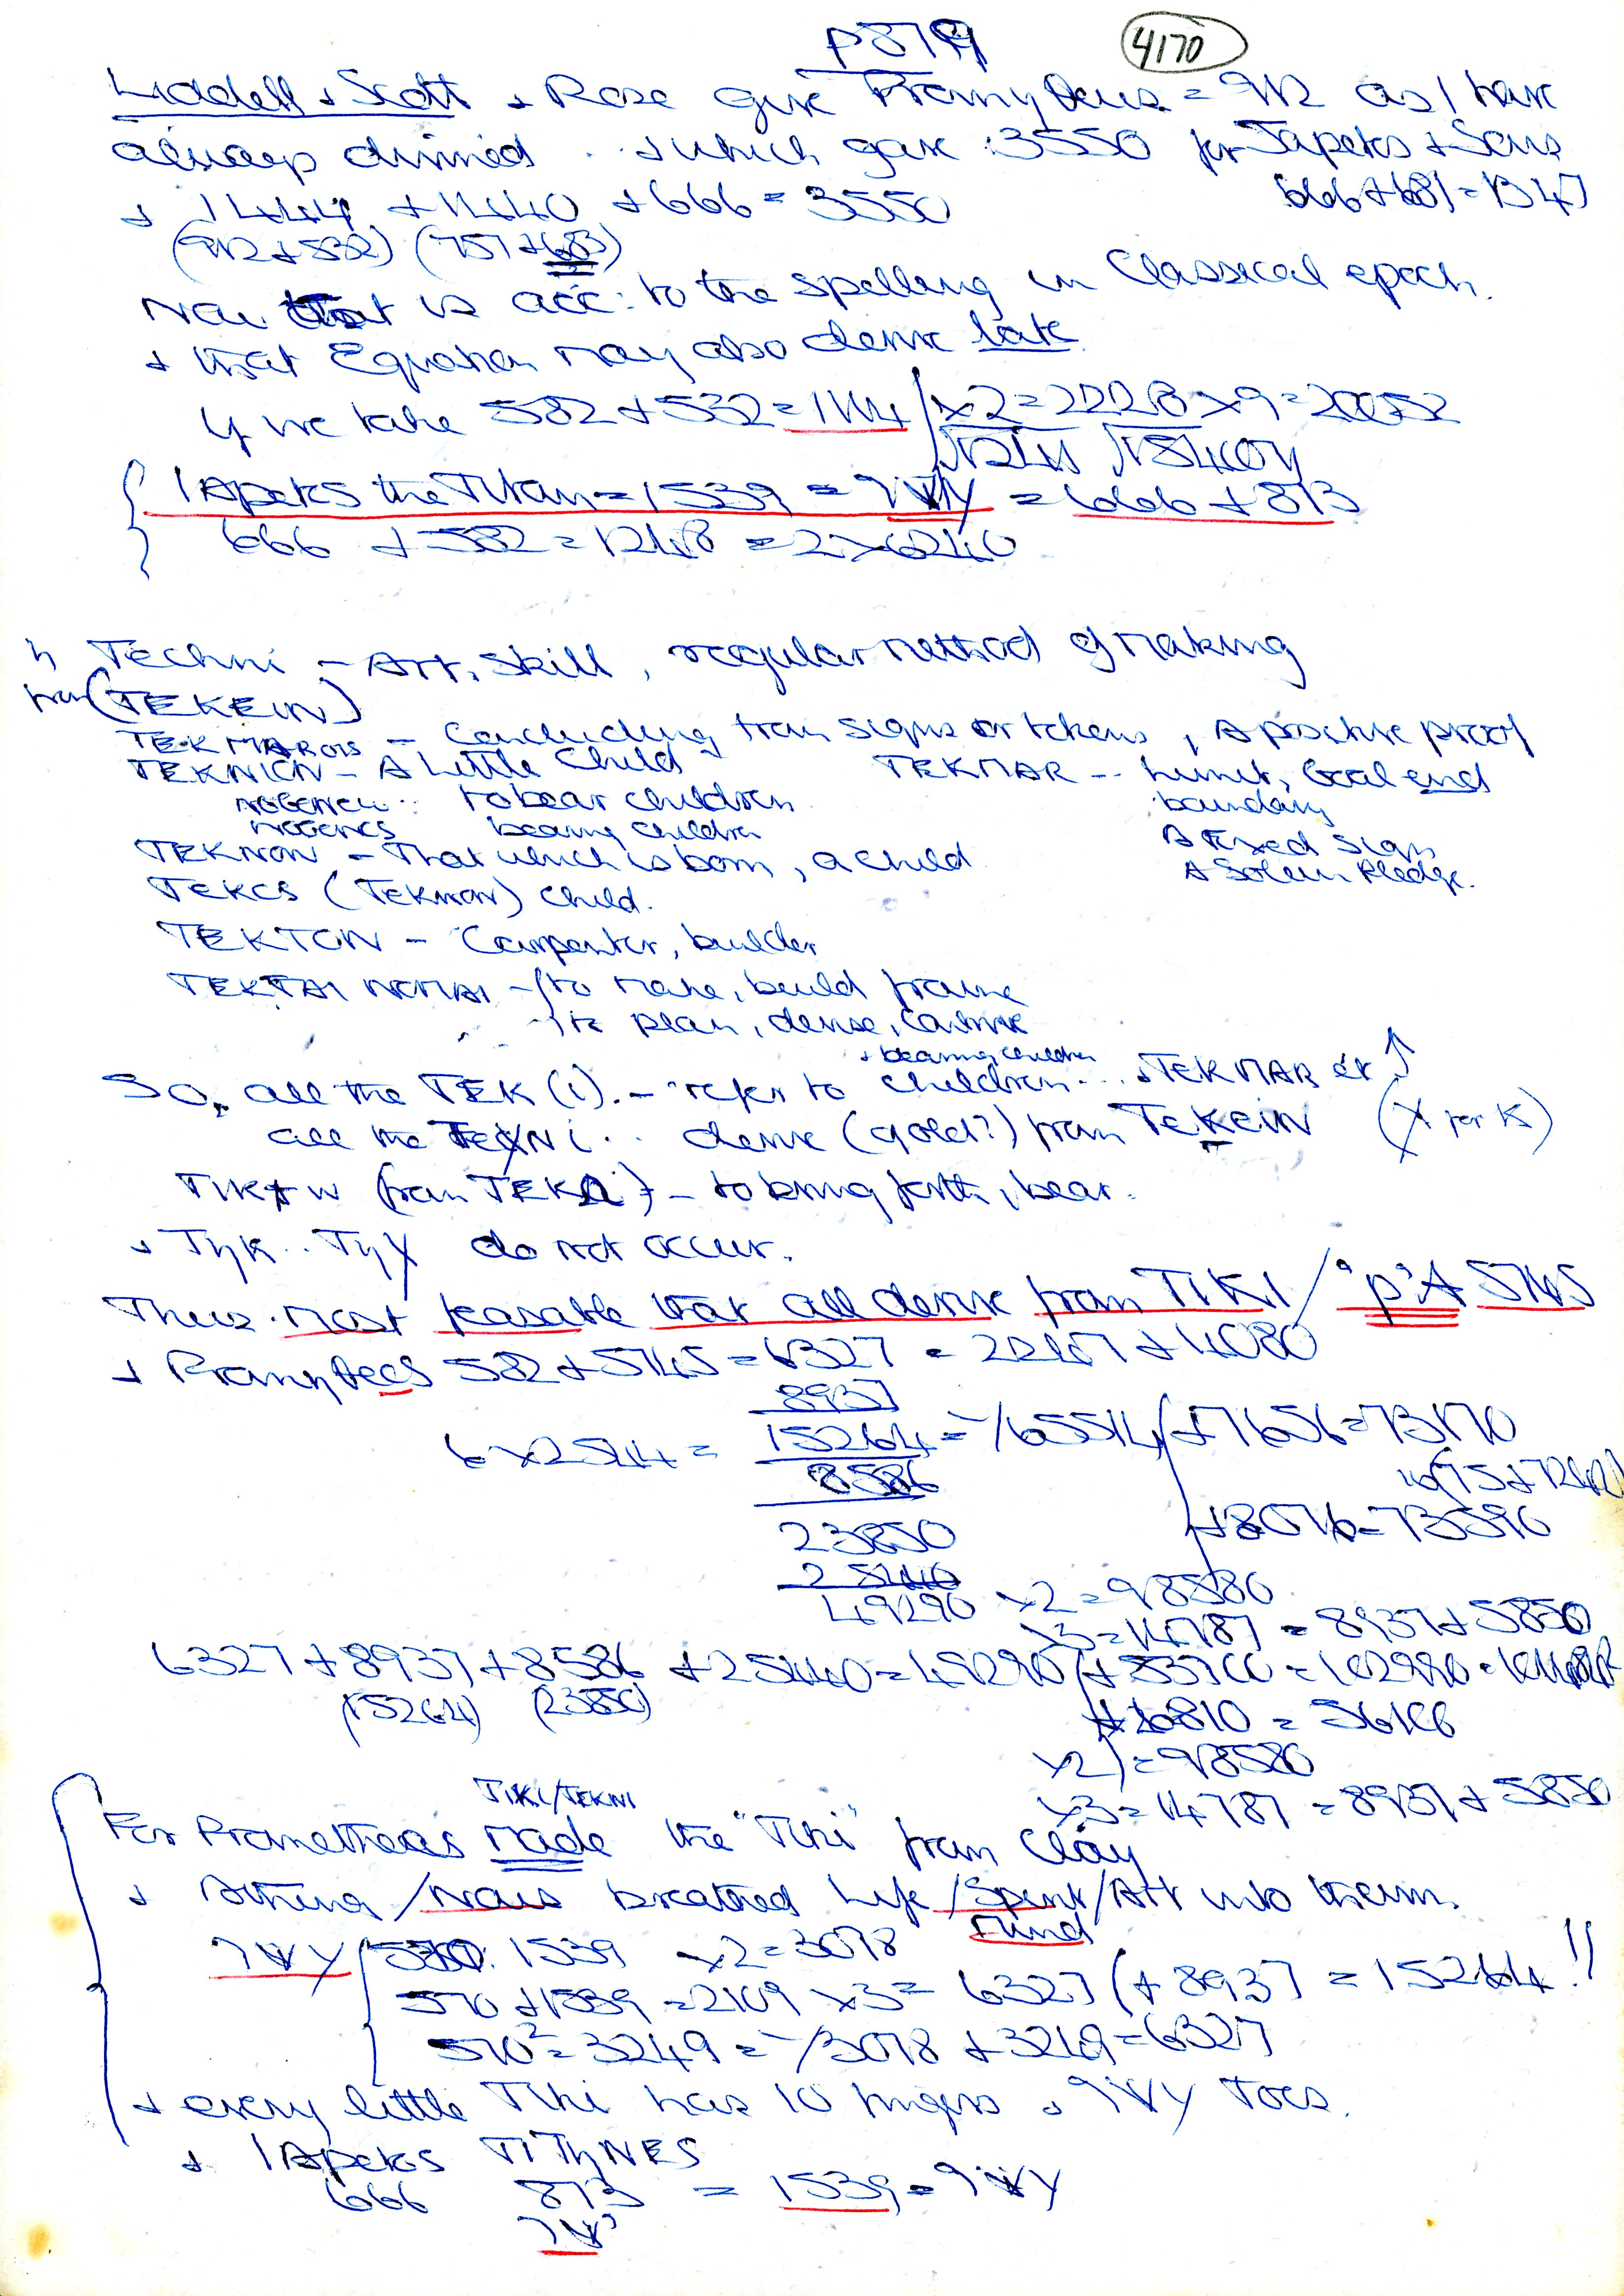 p 879
4170
Liddell + Scott + Rose give Promytheus = 912 as I have
always divined . + which gave 3550 for Japetos + Sons
666 + 681 = 1347
+ 1444 + 1440 + 666 = 3550
(912 + 532) (757 + 683)
Now that is acc: to the spelling in Classical epoch.
+ that Equation may also derive late
If we take 582 + 532 = 1114 / x2 = 2228 x 9 = 20052
IApetos the Titan = 1539 = = 666 + 873
666 + 582 = 1248 = 2 x 6240
Techni - Art, Skill, regular method of making
from (TEKEIN)
TEKMAROIS - Concluding from signs or tokens, A positive proof
TEKNION - A Little Child
TEKMAR - limit, Goal end
to bear children
boundary
NOGONOS bearing children
A Fixed Sign
TEKNON - That which is born, a child
A Solemn Pledge.
TEKOS (Teknon) Child.
TEKTON - Carpenter, builder
TEKTAI NOMAI - to make, build frame
to plan, devise, Contrive
+ bearing children
So, all the TEK (i). - refer to Children ... TEKMAR
all the TEXNi .. derive (gold?) from TeKeiN (X for K)
TIKTW (from TEKΩ) - to bring forth, bear.
+ TyK .. TyX do not occur.
Thus most feasable that all derive from TIKI / 'p'A 5745
+ Promythees 582 + 5745 = 6327 = 2247 + 4080
8937
6 x 2544 = 15264 = -/65514 + 7656 = 73170
8586
+ 8076 = 73590
23850
25440
49290 x2 = 98580
x3 = 14787 = 8937 + 5850
6327 + 8937 + 8586 + 25440 = 49290 + 53700 = 102990
(15264) (23850)
+ 6810 = 56100
x2 = 98580
x3 = 14787 = 8937 + 5850
TIKI/TEKNI
For Prometheus made the "Tiki" from Clay
+ Athena / Nous breathed Life / Spirit / Art into them.
Mind
570 : 1539 x2 = 3078
570 + 1539 = 2109 x3 = 6327 (+ 8937 = 15264 !!
570² = 3249 = -/3078 + 3249 = 6327
+ every little Tiki has 10 fingers + Toes.
+ IApetos TITyNES
666 873 = 1539 =